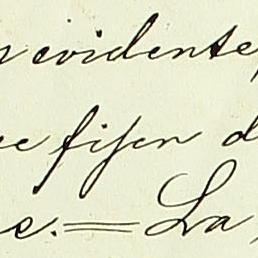 y evidente,
e fijen d
e.= La